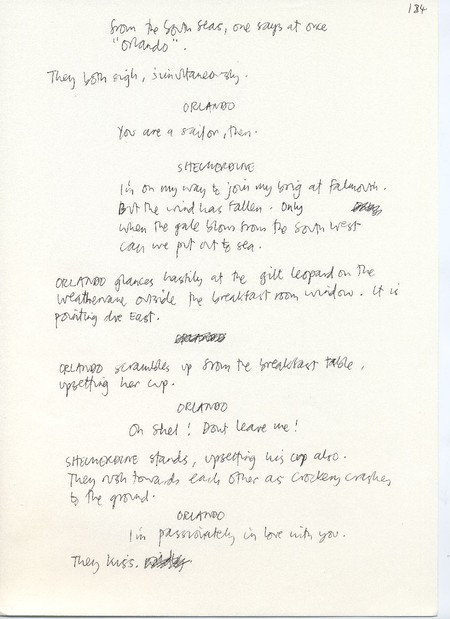 134
from the South Seas, one says at once
"Orlando".
They both sigh, simultaneously.
ORLANDO
You are a sailor, then.
SHELMERDINE
I'm on my way to join my brig at Falmouth.
But the wind has fallen. Only
when the gale blows from the South West
can we put out to sea.
ORLANDO glances hastily at the gilt leopard on the
weathervane outside the breakfast room window. It is
pointing due East.
ORLANDO scrambles up from the breakfast table,
upsetting her cup.
ORLANDO
Oh Shel! Dont leave me!
SHELMERDINE stands, upsetting his cup also.
They rush towards each other as crockery crashes
to the ground.
ORLANDO
I'm passionately in love with you.
They kiss.